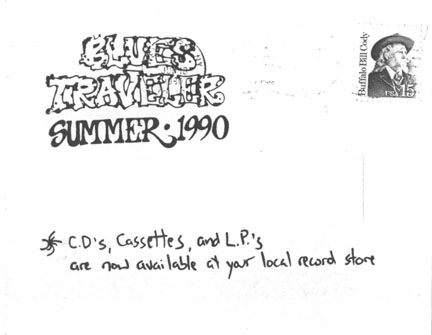 BLUES
TRAVELER
SUMMER · 1990
Buffalo Bill Cody
USA 15
C.D's, Cassettes, and L.P.'s
are now available at your local record store